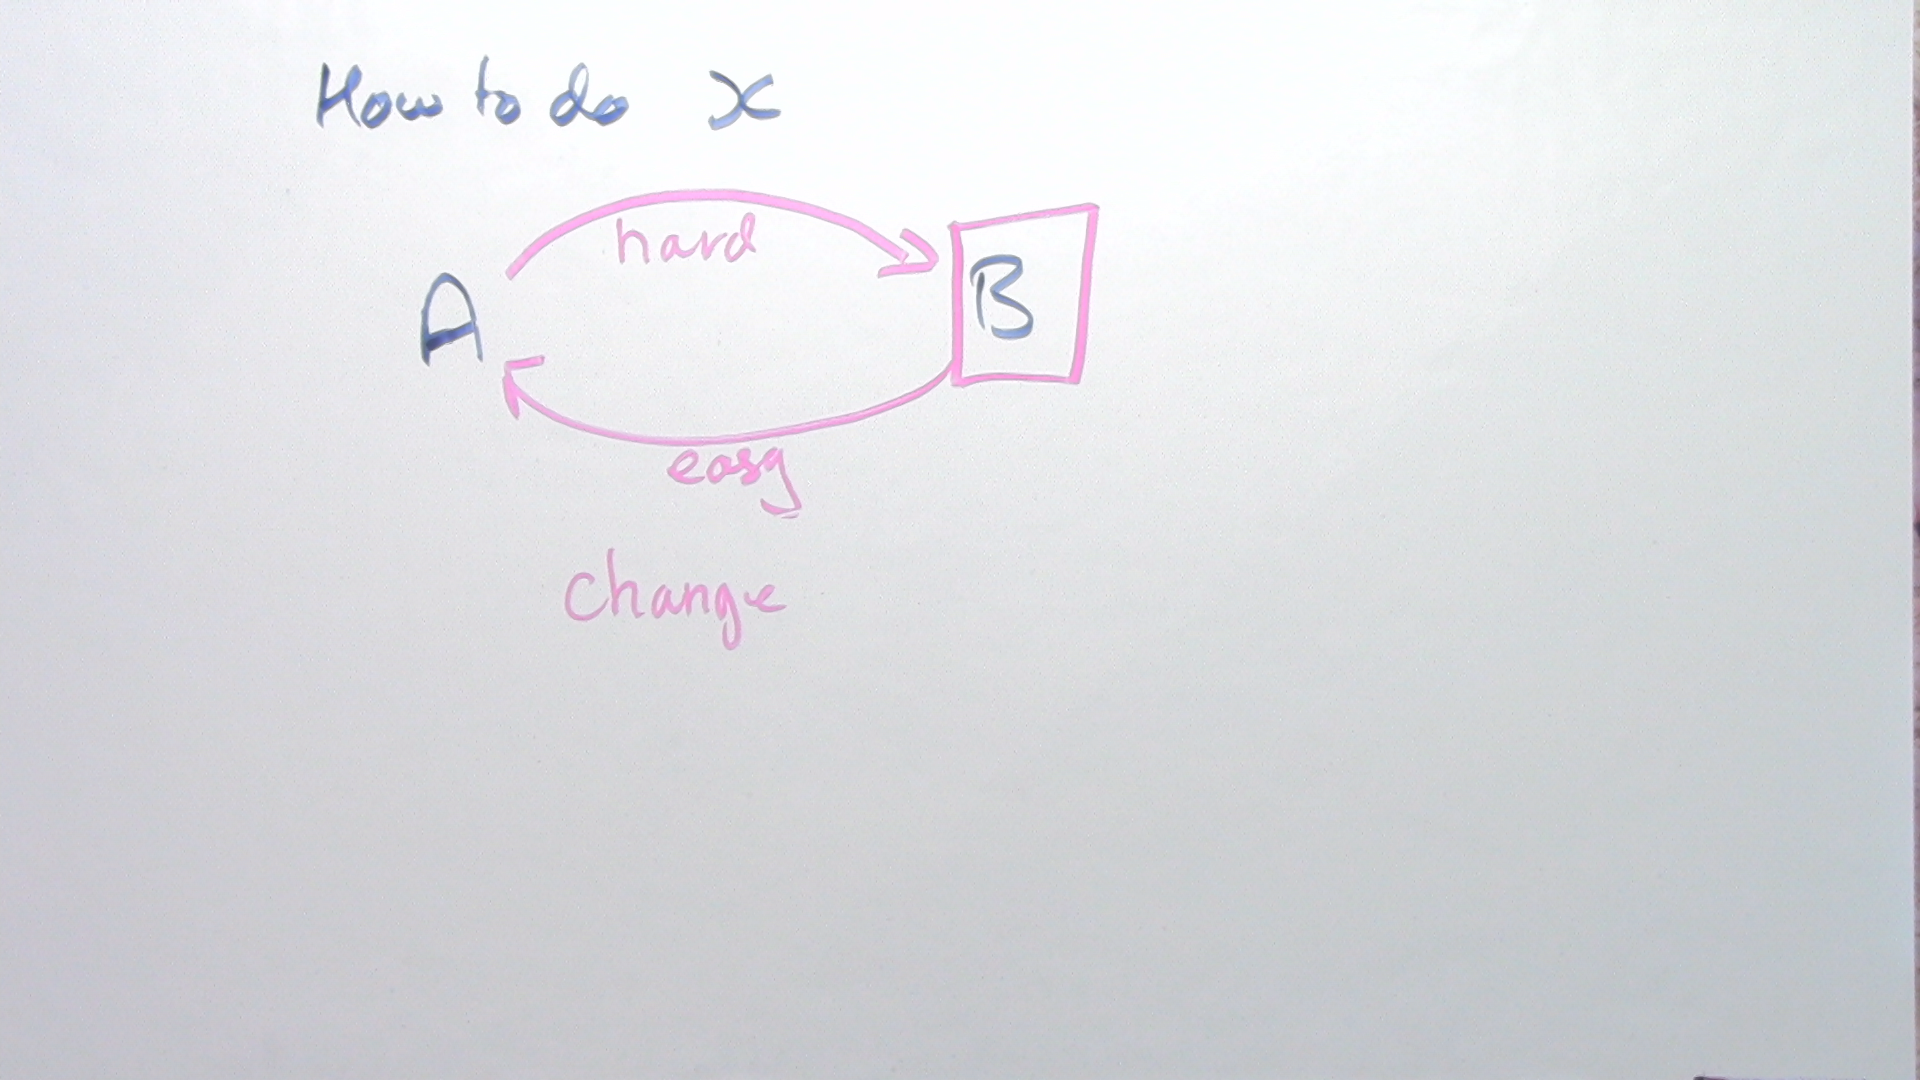 How to do x
hard
A B
easy
change